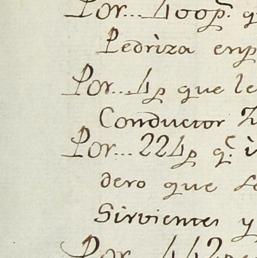 Por... 400p.
Pedriza enp
Por... 4p que le
Conductor
Por... 224p q.
dero que se
Sirvientes y
Por 442p